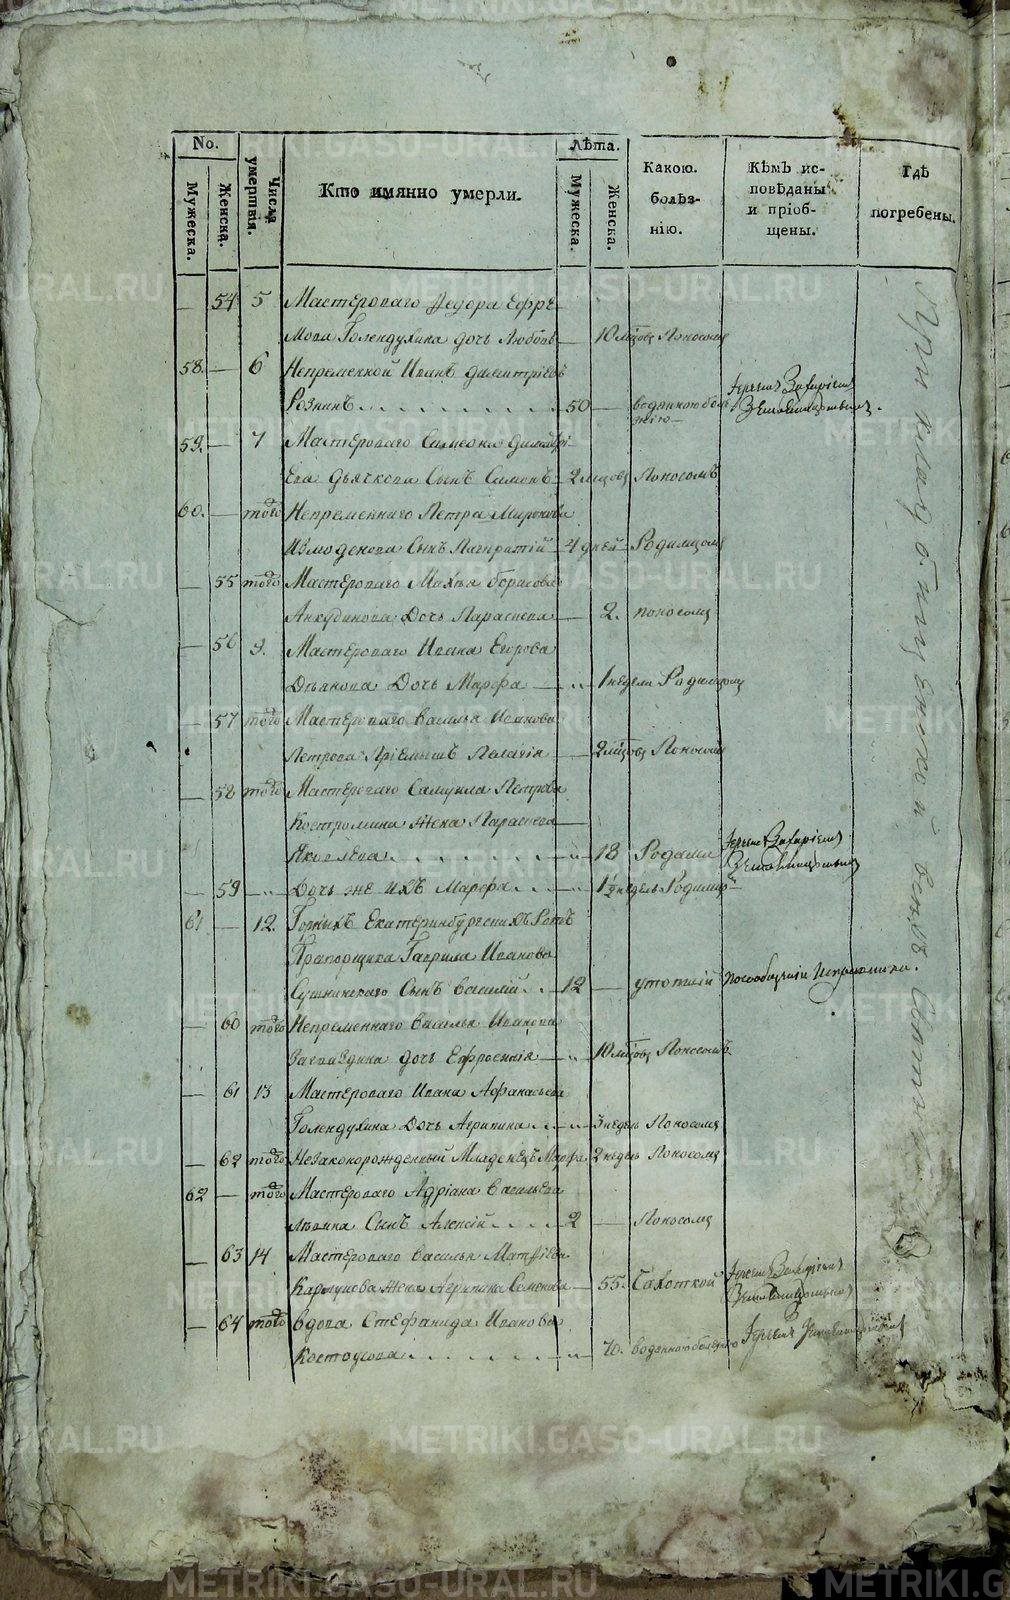 No. Числа умертвія. Кто имянно умерли. Лѣта. Какою. болѣз- нію. Кѣмъ ис- повѣданы и пріоб- щены. Гдѣ погребены.
Мужеска. Женска. Мужеска. Женска.
— 54 5 Мастероваго Ѳедора Ефре
мова Голендухина дочь Любовь — 10 мѣсцовъ Поносомъ
58. — 6 Непременной Иванъ Димитріевъ
Рознинъ 50 — водянною болезнію Іереемъ Захаріемъ
59. — 7 Мастероваго Симеона Димитрі-
ева Дьячкова Сынъ Симонъ — 2 мѣсцовъ Поносомъ
60. — того Непременнаго Петра Миронова
Измоденова Сынъ — 4 дней Родимцомъ
— 55 того Мастероваго Борисова
Анкудинова Дочь Параскева — 2. поносомъ
— 56 9. Мастероваго Ивана Егорова
Дьякова Дочь Марфа — „ 1 недели Родимцомъ
— 57 того Мастероваго Василья Иванова
Петрова Пріемышъ Пелагія — 2 мѣсцовъ Поносомъ
— 58 того Мастероваго Самуила Петрова
Костромина жена Параскева
Яковлева „ 18 Родами Іереемъ Захаріемъ
— 59 „ Дочь же ихъ Марфа „ 1½ недель Родимц
61 — 12. Горныхъ Екатеринбургскихъ Ротъ
Прапорщика Гаврила Иванова
Сушинскаго Сынъ Василій 12 — утопшій
— 60 того Непременнаго Василья Иванова
дочь Ефросинія — „ 10 мѣсцовъ Поносомъ
— 61 13 Мастероваго Ивана Афанасьева
Голендухина Дочь Агрипина „ 3 недель Поносомъ
— 62 того Незаконорожденный Младенецъ Марфа 2 недель Поносомъ
62 — того Мастероваго Адріана Васильева
Сынъ Алексій 2 — Поносомъ
— 63 14 Мастероваго Василья Матфіева
жена Агрипина Семенова — 55. Чахоткой Іереемъ Захаріемъ
— 64 того вдова Стефанида Иванова
Костоусова „ 70. водянною болезнію Іереемъ
При
METRIKI.GASO-URAL.RU